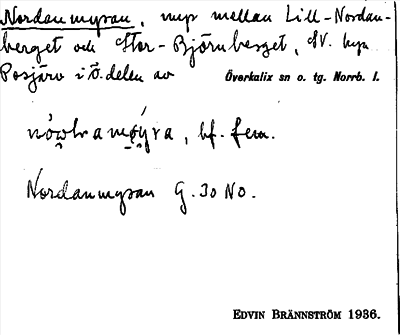 Nordanmyran, myr mellan Lill-Nordan-
berget och Stor-Björnberget, SV. byn
Posjärv i Ö. delen av Överkalix sn o. tg. Norrb. l.
bf. fem.
Nordanmyran G. 30 NO.
EDVIN BRÄNNSTRÖM 1936.